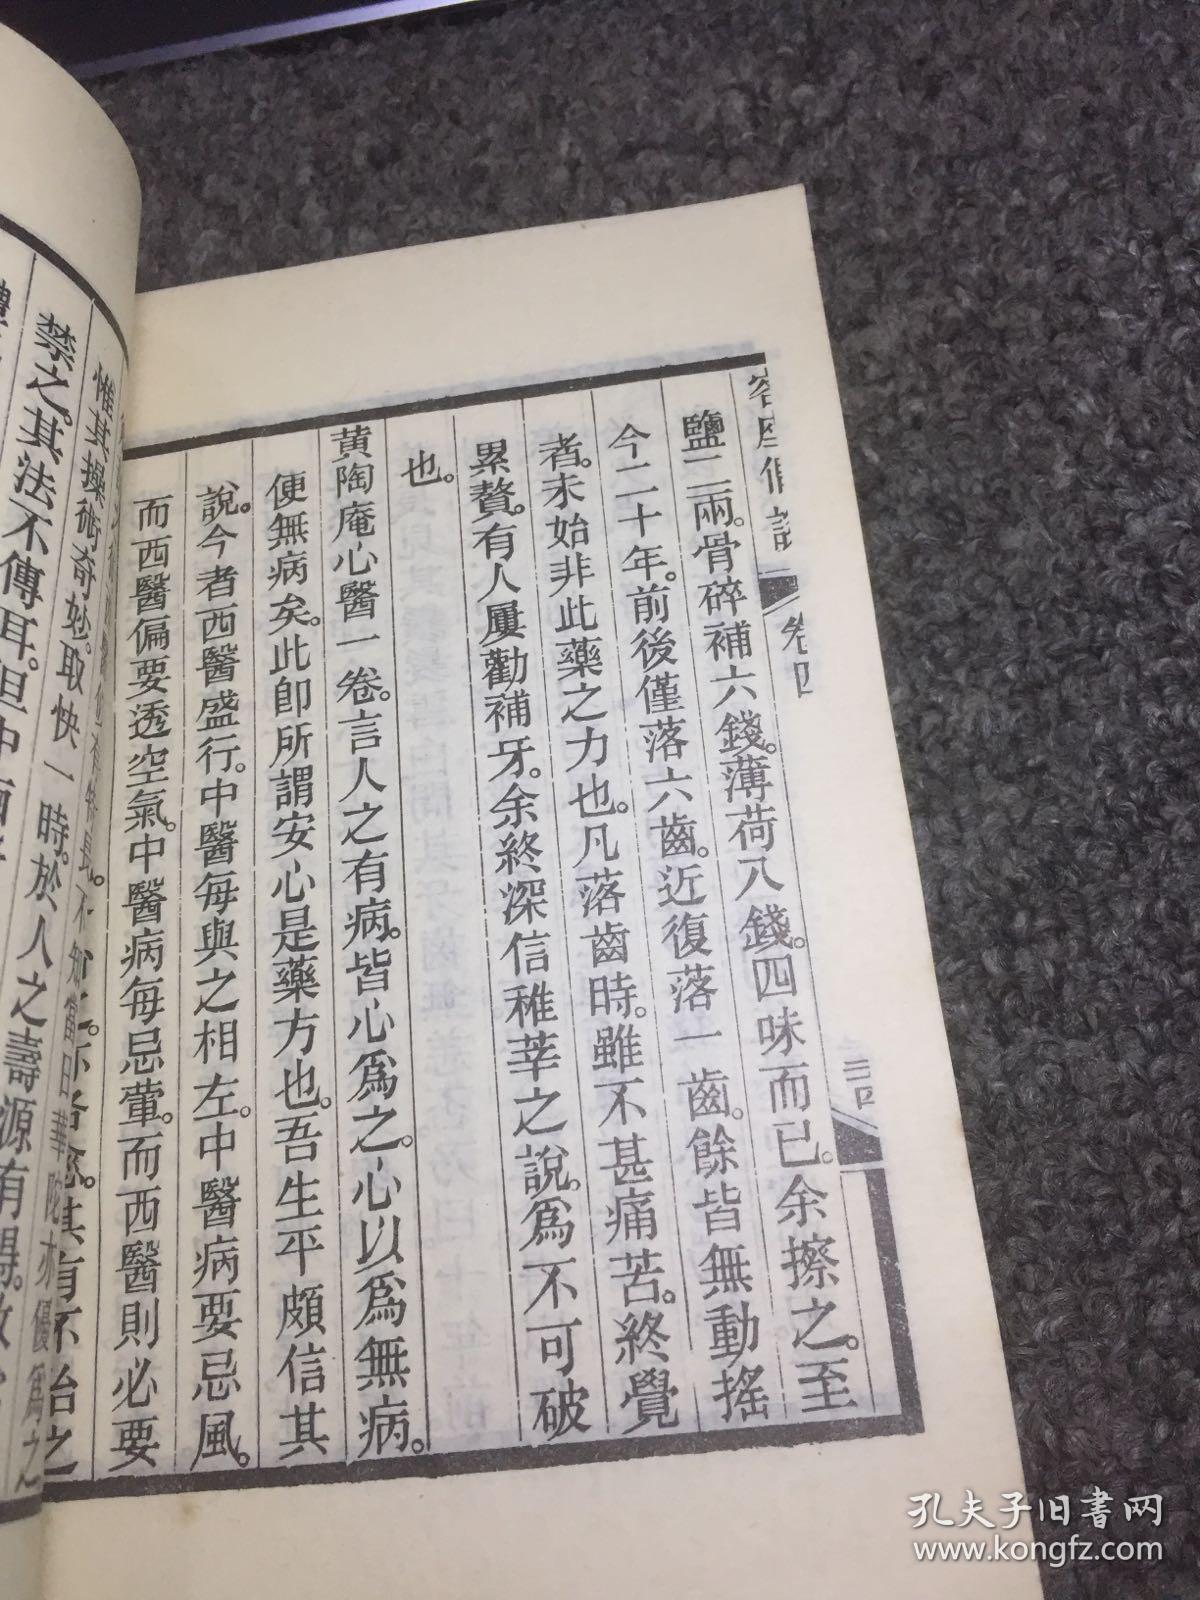 卷四
鹽二兩。骨碎補六錢。薄荷八錢。四味而已。余擦之。至
今二十年。前後僅落六齒。近復落一齒。餘皆無動搖
者。未始非此藥之力也。凡落齒時。雖不甚痛苦。終覺
累贅。有人屢勸補牙。余終深信稚莘之說。爲不可破
也。
黄陶庵心醫一卷。言人之有病。皆心爲之。心以爲無病。
便無病矣。此卽所謂安心是藥方也。吾生平頗信其
說。今者西醫盛行。中醫每與之相左。中醫病要忌風。
而西醫偏要透空氣。中醫病每忌葷。而西醫則必要
其有不治之
惟其操術奇妙。取快一時。於人之壽源有得。
禁之。其法不傳耳。但中
孔夫子旧書网
www.kongfz.com